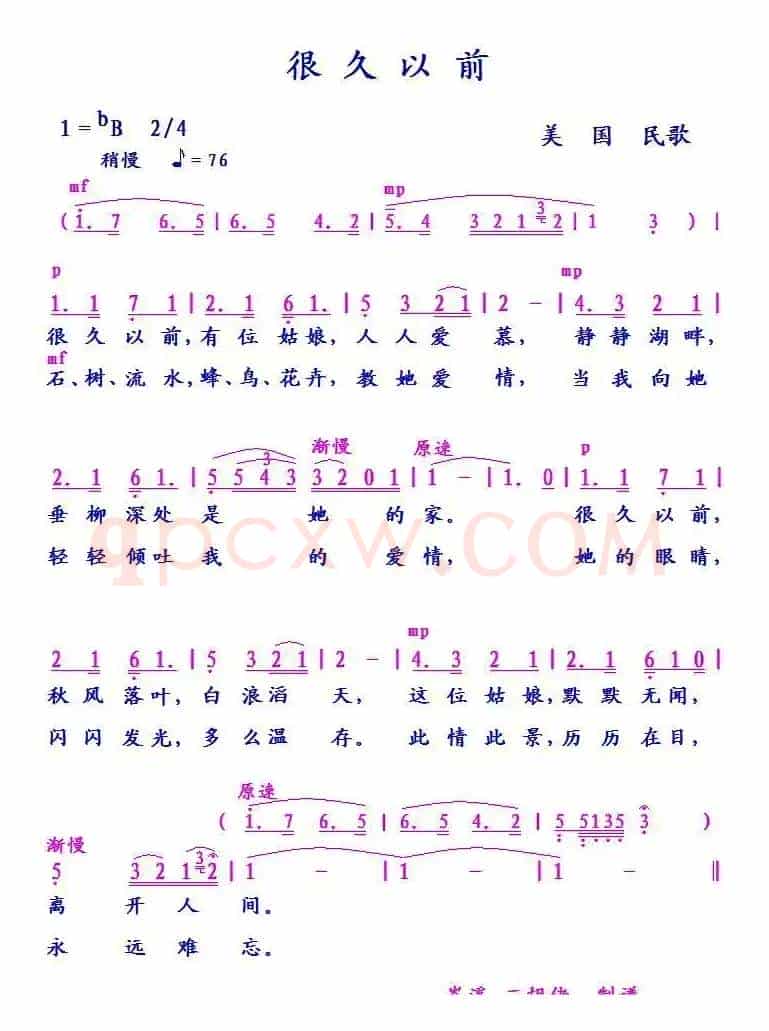 很久以前
1=ᵇB 2/4 美国 民歌
稍慢 ♪=76
mf mp
(1. 7 6. 5 | 6. 5 4. 2 | 5. 4 3 2 1 3 2 | 1 3 ) |
p mp
1. 1 7 1 | 2. 1 6 1. | 5 3 2 1 | 2 - | 4. 3 2 1 |
很久以前,有位姑娘,人人爱慕,静静湖畔,
mf
石、树、流水,蜂、鸟、花卉,教她爱情,当我向她
渐慢 原速 p
2. 1 6 1. | 5 5 4 3 3 2 0 1 | 1 - | 1. 0 | 1. 1 7 1 |
垂柳深处是她的家。很久以前,
轻轻倾吐我的爱情,她的眼睛,
qpcxw.COM
mp
2 1 6 1. | 5 3 2 1 | 2 - | 4. 3 2 1 | 2. 1 6 1 0 |
秋风落叶,白浪滔天,这位姑娘,默默无闻,
闪闪发光,多么温存。此情此景,历历在目,
原速
( 1. 7 6. 5 | 6. 5 4. 2 | 6. 5 4. 2 | 5 5135 3 )
渐慢
5 3 2 1 3 2 | 1 - | 1 - | 1 - ‖
离开人间。
永远难忘。